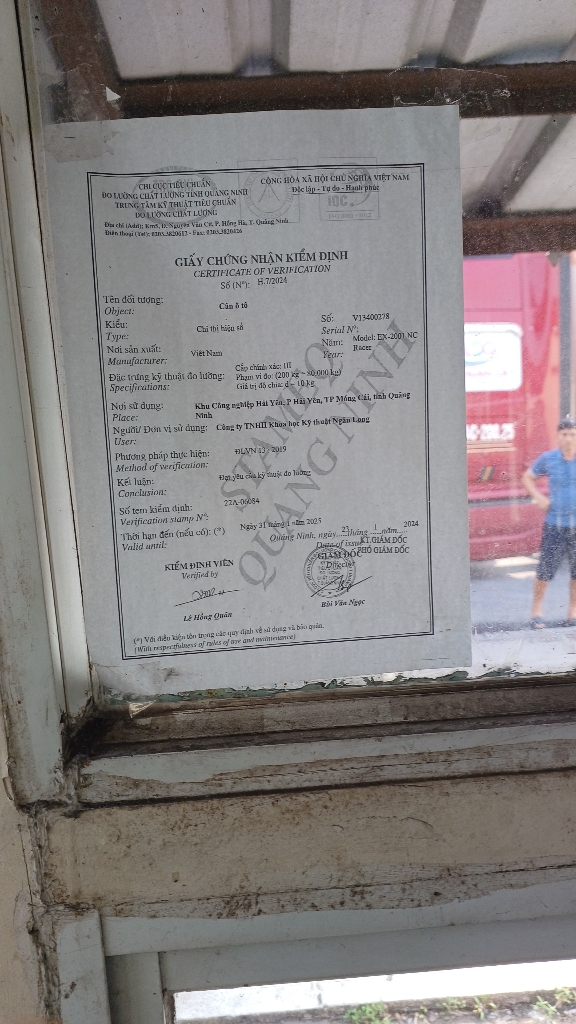 CHI CỤC TIÊU CHUẨN
ĐO LƯỜNG CHẤT LƯỢNG TỈNH QUẢNG NINH
TRUNG TÂM KỸ THUẬT TIÊU CHUẨN
ĐO LƯỜNG CHẤT LƯỢNG
Địa chỉ (Add): Km5, Đ. Nguyễn Văn Cừ, P. Hồng Hà, T. Quảng Ninh
Điện thoại (Tel): 0203.3820613 - Fax: 0203.3820426
CỘNG HÒA XÃ HỘI CHỦ NGHĨA VIỆT NAM
Độc lập - Tự do - Hạnh phúc
IQC
GIẤY CHỨNG NHẬN KIỂM ĐỊNH
CERTIFICATE OF VERIFICATION
Số (N°): H.7/2024
Tên đối tượng: Cân ô tô
Object:
Kiểu: Chỉ thị hiện số
Type:
Số: V13400278
Serial N°:
Nơi sản xuất: Việt Nam
Manufacturer:
Năm: Model: EX-2001 NC
Year: Racer
Đặc trưng kỹ thuật đo lường: Cấp chính xác: III
Specifications: Phạm vi đo: (200 kg ÷ 80.000 kg)
Giá trị độ chia: d = 10 kg
Nơi sử dụng: Khu Công nghiệp Hải Yên, P Hải Yên, TP Móng Cái, tỉnh Quảng
Place: Ninh
Người/ Đơn vị sử dụng: Công ty TNHH Khoa học Kỹ thuật Ngân Long
User:
Phương pháp thực hiện: ĐLVN 13 : 2019
Method of verification:
Kết luận: Đạt yêu cầu kỹ thuật đo lường
Conclusion:
Số tem kiểm định: 22A-06084
Verification stamp N°:
Thời hạn đến (nếu có): (*) Ngày 31 tháng 1 năm 2025
Valid until:
Quảng Ninh, ngày 23 tháng 1 năm 2024
Date of issue
KIỂM ĐỊNH VIÊN
Verified by
KT.GIÁM ĐỐC
GIÁM ĐỐC PHÓ GIÁM ĐỐC
Director
Lê Hồng Quân
Bùi Văn Ngọc
(*) Với điều kiện tôn trọng các quy định về sử dụng và bảo quản.
(With respectfulness of rules of use and maintenance)
STAMEQ
QUANG NINH